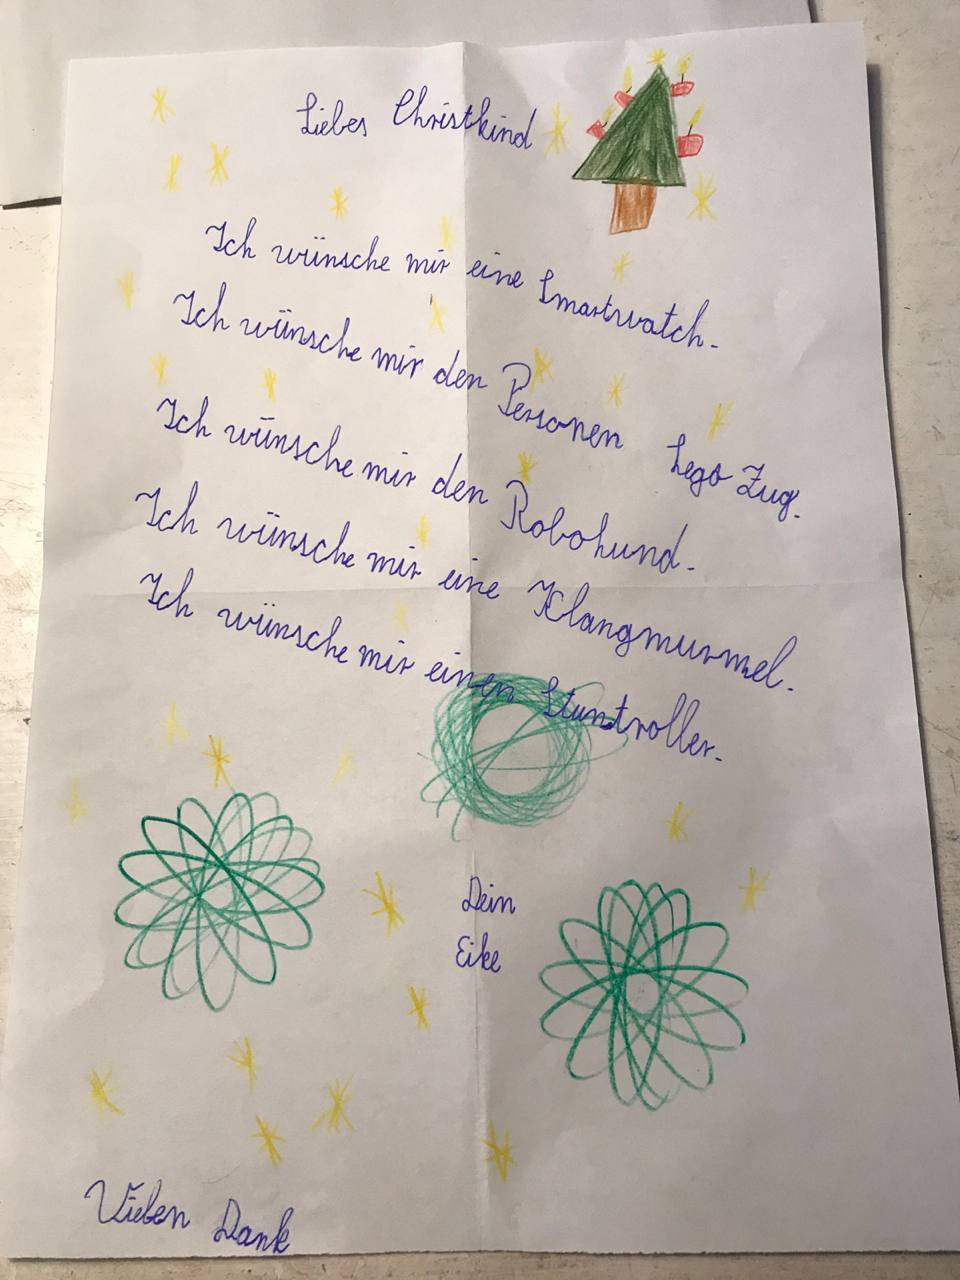 Liebes Christkind
Ich wünsche mir eine Smartwatch.
Ich wünsche mir den Personen Lego Zug.
Ich wünsche mir den Robohund.
Ich wünsche mir eine Klangmurmel.
Ich wünsche mir einen Stuntroller.
Dein
Eike
Vielen Dank